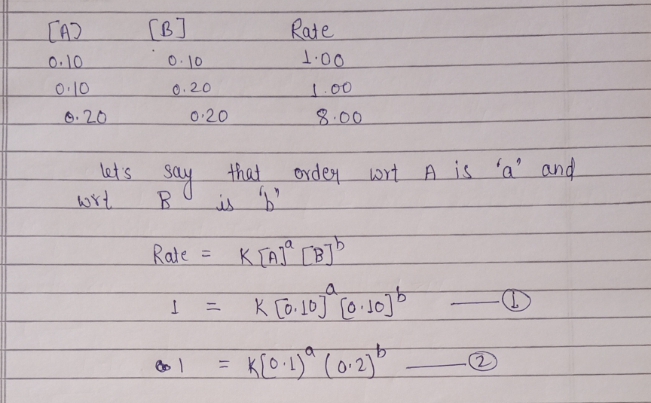 [A] [B] Rate
0.10 0.10 1.00
0.10 0.20 1.00
0.20 0.20 8.00
let's say that order wrt A is 'a' and
wrt B is 'b"
Rate = K [A]ᵃ [B]ᵇ
1 = K [0.10]ᵃ [0.10]ᵇ —— ①
1 = K[0.1)ᵃ (0.2)ᵇ —— ②